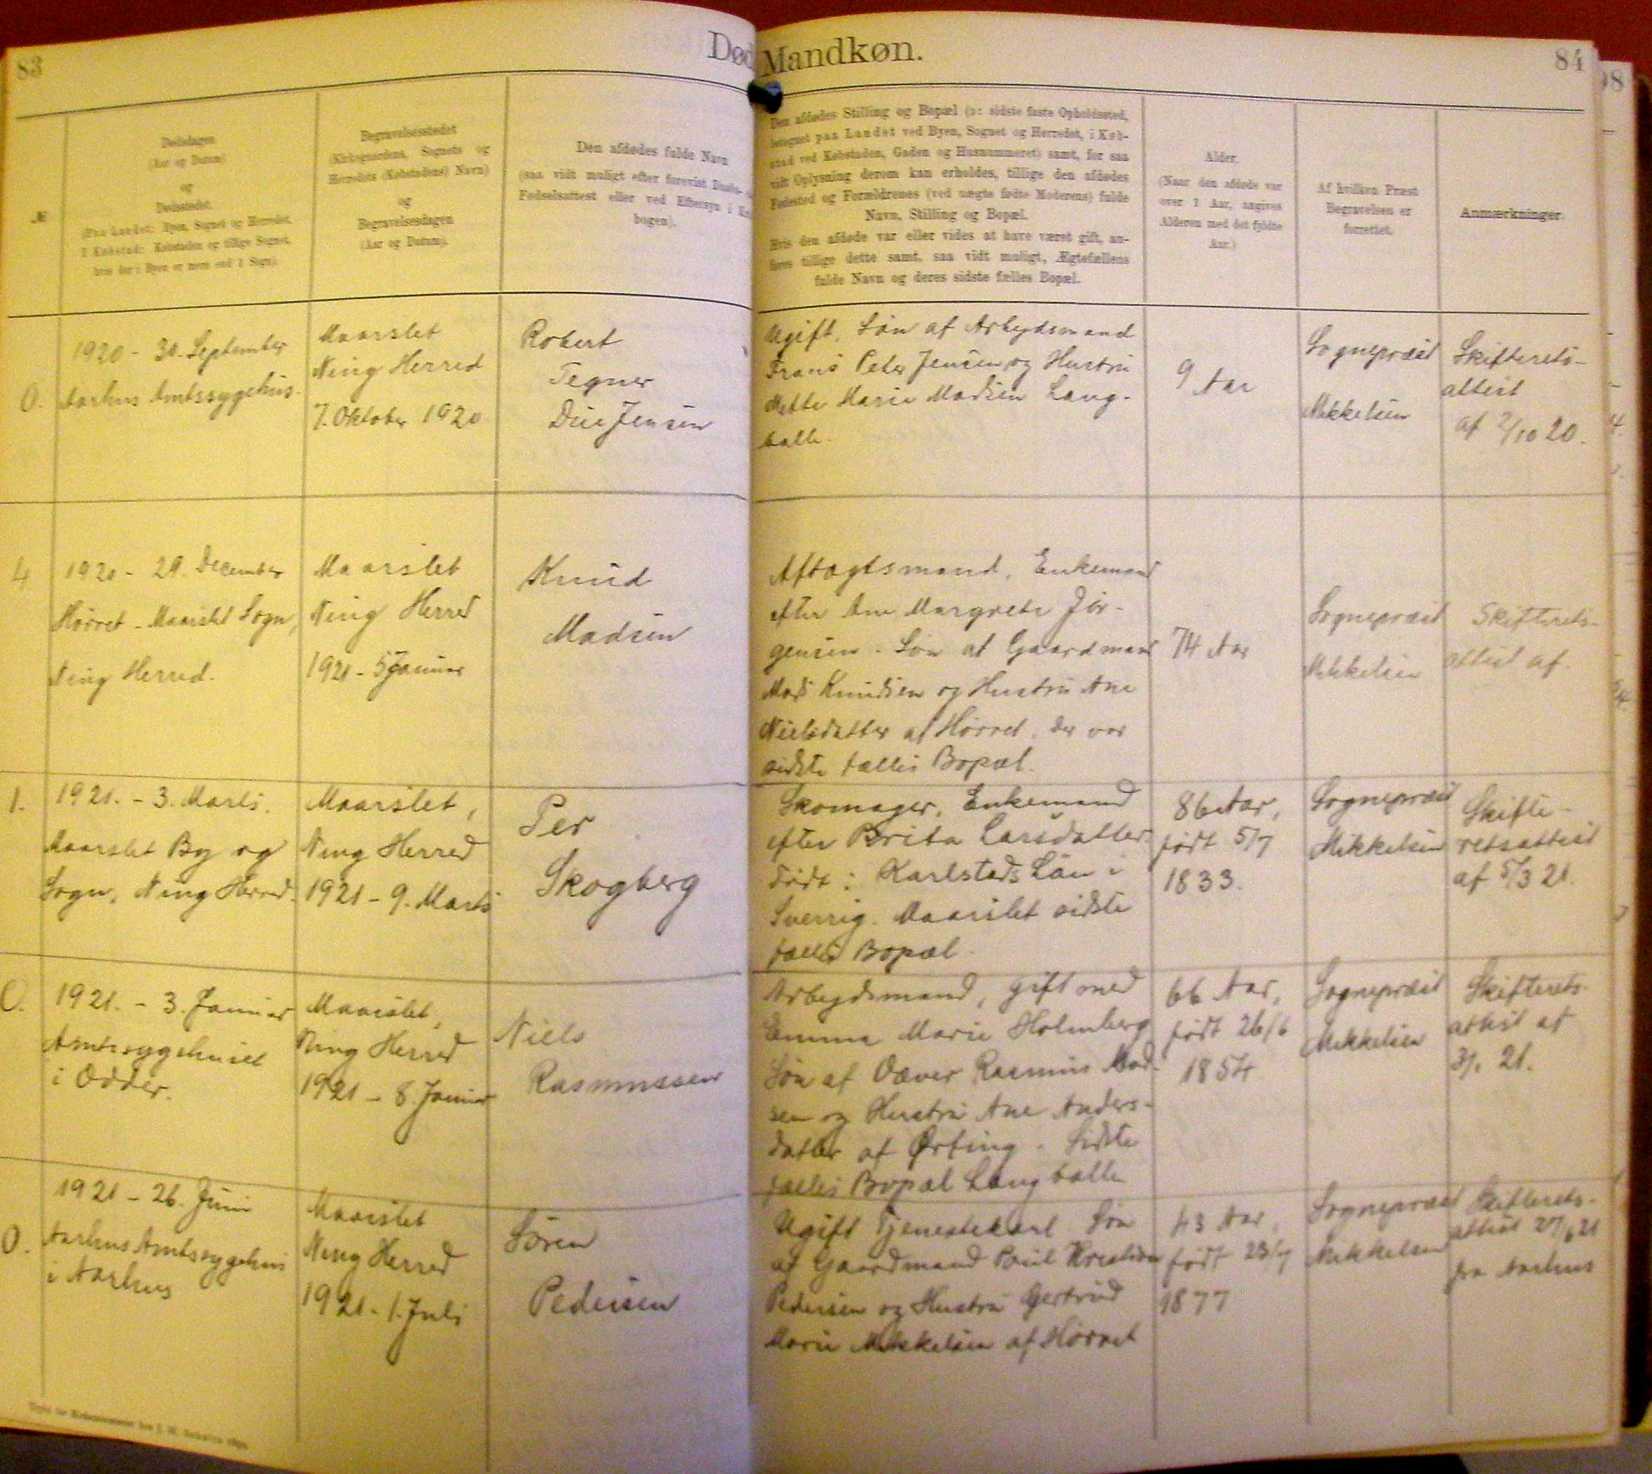 83
Død
Mandkøn.
84
98
№
Dødsdagen
(Aar og Datum)
og
Dødsstedet.
(Paa Landet: Byen, Sognet og Herredet,
I Købstad: Købstaden og tillige Sognet,
hvis der i Byen er mere end 1 Sogn).
Begravelsesstedet
(Kirkegaardens, Sognets og
Herredets (Købstadens) Navn)
og
Begravelsesdagen
(Aar og Datum).
Den afdødes fulde Navn
(saa vidt muligt efter forevist Daabs-
Fødselsattest eller ved Eftersyn i
bogen).
Den afdødes Stilling og Bopæl (ɔ: sidste faste Opholdssted,
betegnet paa Landet ved Byen, Sognet og Herredet, i Køb-
stad ved Købstaden, Gaden og Husnummeret) samt, for saa
vidt Oplysning derom kan erholdes, tillige den afdødes
Fødested og Forældrenes (ved uægte fødte Moderens) fulde
Navn, Stilling og Bopæl.
Hvis den afdøde var eller vides at have været gift, an-
føres tillige dette samt, saa vidt muligt, Ægtefællens
fulde Navn og deres sidste fælles Bopæl.
Alder.
(Naar den afdøde var
over 1 Aar, angives
Alderen med det fyldte
Aar.)
Af hvilken Præst
Begravelsen er
forrettet.
Anmærkninger.
O.
1920 - 30. September
Aarhus Amtssygehus.
Maarslet
Ning Herred
7. Oktober 1920
Robert
Tegner
Due Jensen
Ugift. Søn af Arbejdsmand
Frans Peter Jensen og Hustru
Mette Marie Madsen Lang-
balle.
9 Aar
Sognepræst
Mikkelsen
Skifterets-
attest
af 2/10 20.
4
1920 - 29. December
Hørret - Maarslet Sogn,
Ning Herred.
Maarslet
Ning Herred
1921 - 5 Januar
Knud
Madsen
Aftægtsmand, Enkemand
efter Ane Margrete Jør-
gensen. Søn af Gaardmand
Mads Knudsen og Hustru Ane
Nielsdatter af Hørret, der var
sidste fælles Bopæl.
74 Aar
Sognepræst
Mikkelsen
Skifterets-
attest af.
1.
1921. - 3. Marts.
Maarslet By og
Sogn, Ning Herred.
Maarslet,
Ning Herred
1921 - 9. Marts
Per
Skogberg
Skomager, Enkemand
efter Brita Larsdatter
født i Karlstads Län i
Sverrig. Maarslet sidste
fælles Bopæl.
86 Aar,
født 5/7
1833.
Sognepræst
Mikkelsen
Skifte-
retsattest
af 5/3 21.
O.
1921. - 3. Januar
Amtssygehuset
i Odder.
Maarslet,
Ning Herred
1921 - 8. Januar
Niels
Rasmussen
Arbejdsmand, gift med
Emma Marie Holmberg
Søn af Væver Rasmus Mad-
sen og Hustru Ane Anders-
datter af Ørting. Sidste
fælles Bopæl Langballe
66 Aar,
født 26/6
1854
Sognepræst
Mikkelsen
Skifterets-
attest af
3/1 21.
O.
1921 - 26. Juni
Aarhus Amtssygehus
i Aarhus
Maarslet
Ning Herred
1921 - 1. Juli
Søren
Pedersen
Ugift Tjenestekarl. Søn
af Gaardmand Poul Kristian
Pedersen og Hustru Gertrud
Marie Mikkelsen af Hørret
43 Aar,
født 23/7
1877
Sognepræst
Mikkelsen
Skifterets-
attest 27/6 21
fra Aarhus